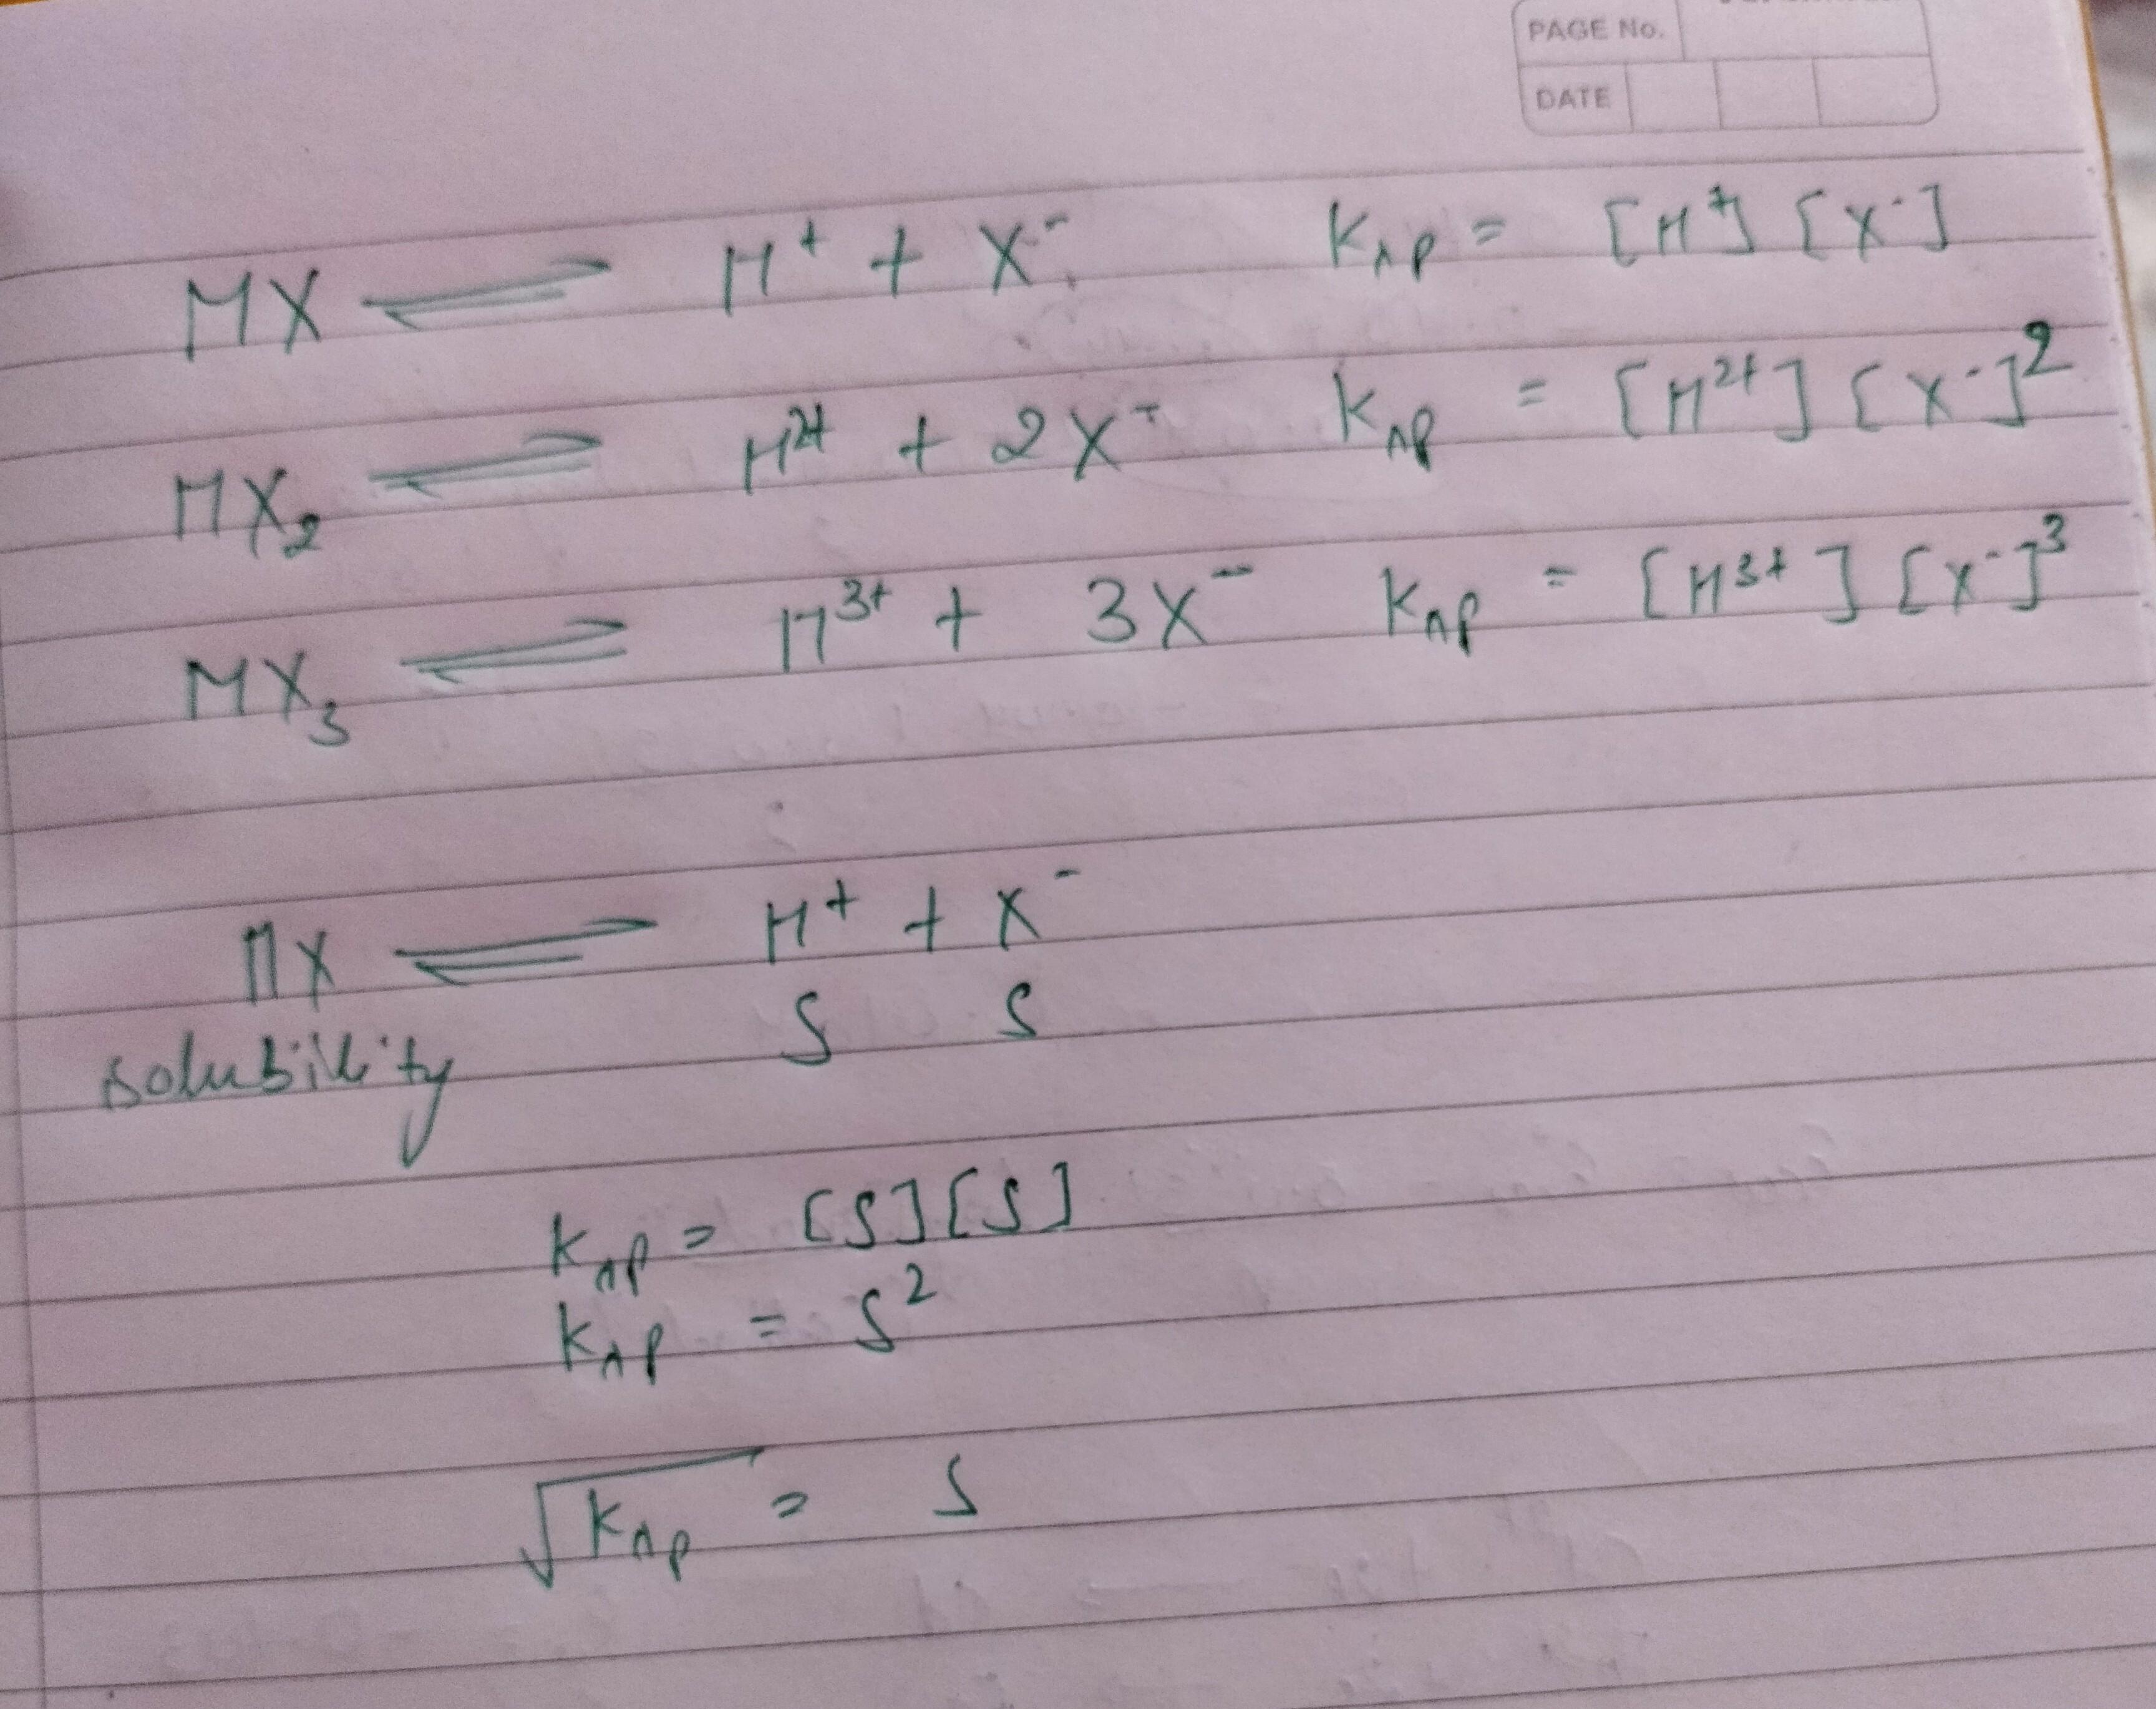 PAGE No.
DATE
MX ⇌ M⁺ + X⁻ Ksp = [M⁺] [X⁻]
MX₂ ⇌ M²⁺ + 2X⁻ Ksp = [M²⁺] [X⁻]²
MX₃ ⇌ M³⁺ + 3X⁻ Ksp = [M³⁺] [X⁻]³
MX ⇌ M⁺ + X⁻
solubility S S
Ksp = [S][S]
Ksp = S²
√Ksp = S